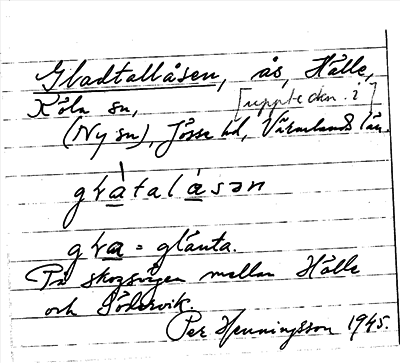 Gladtallåsen, ås, Hålle,
Köla sn, [uppteckn. i]
(Ny sn), Jösse hd, Värmlands län.
gḷàtalåsən
gḷa = glänta.
På skogsvägen mellan Hålle
och Södervik.
Per Henningsson 1945.